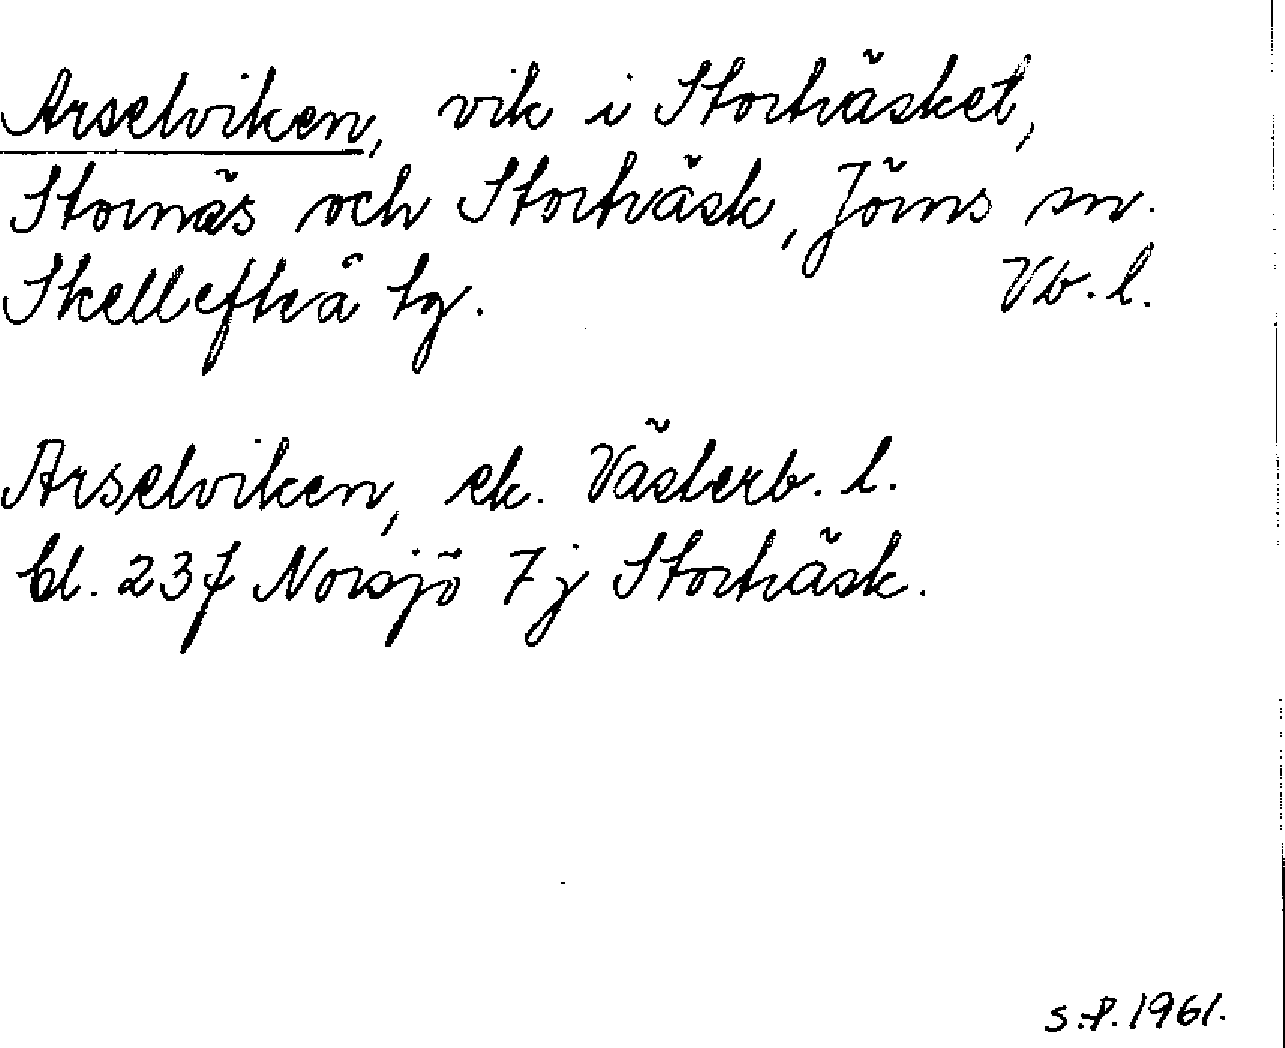 Arselviken, vik i Storträsket,
Stornäs och Storträsk, Jörns sn.
Skellefteå tg. Vb. l.
Arselviken, ek. Västerb. l.
bl. 23 f Norsjö 7 j Storträsk.
S.P. 1961.